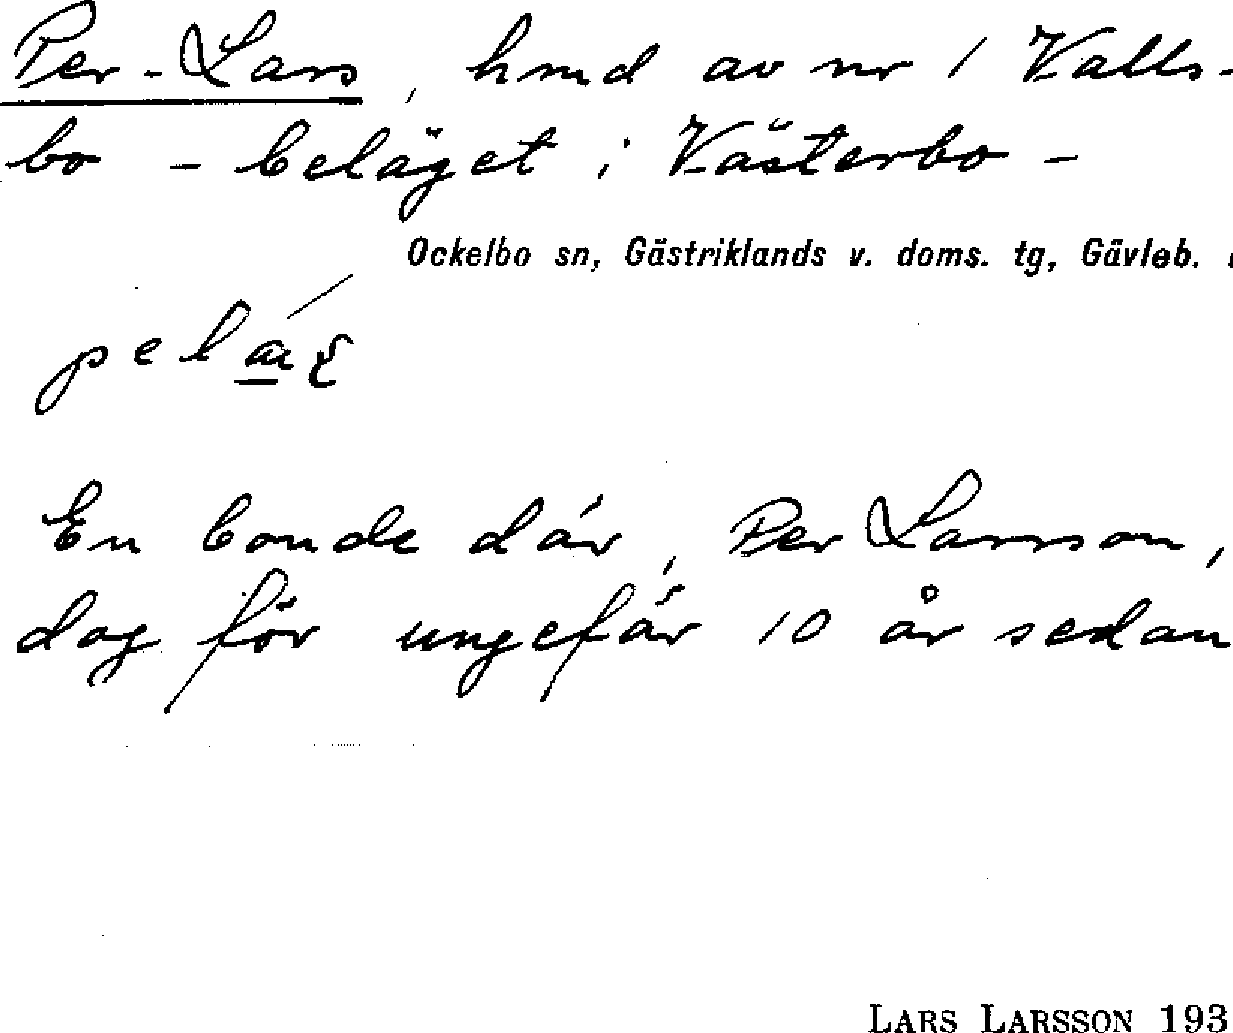 Per-Lars, hmd av nr 1 Valls-
bo - beläget i Västerbo -
Ockelbo sn, Gästriklands v. doms. tg, Gävleb.
En bonde där, Per Larsson,
dog för ungefär 10 år sedan
LARS LARSSON 193